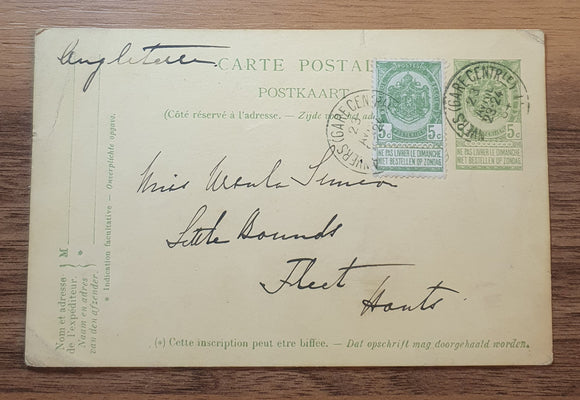 Angleterre
CARTE POSTA
POSTKAART
(Côté réservé à l'adresse. — Zijde voor het a
POSTES
5c 5c
NE PAS LIVRER LE DIMANCHE
NIET BESTELLEN OP ZONDAG
ANVERS (GARE CENTR
23
ANVERS (GARE CENTR
5c
NE PAS LIVRER LE DIMANCHE
NIET BESTELLEN OP ZONDAG
Miss Ursula Simeon
Little Bounds
Fleet
Hants
M
*
Nom et adresse
de l'expéditeur.
Naam en adres
van den afzender.
* Indication facultative — Onverplichte opgave.
(*) Cette inscription peut etre biffée. — Dat opschrift mag doorgehaald worden.